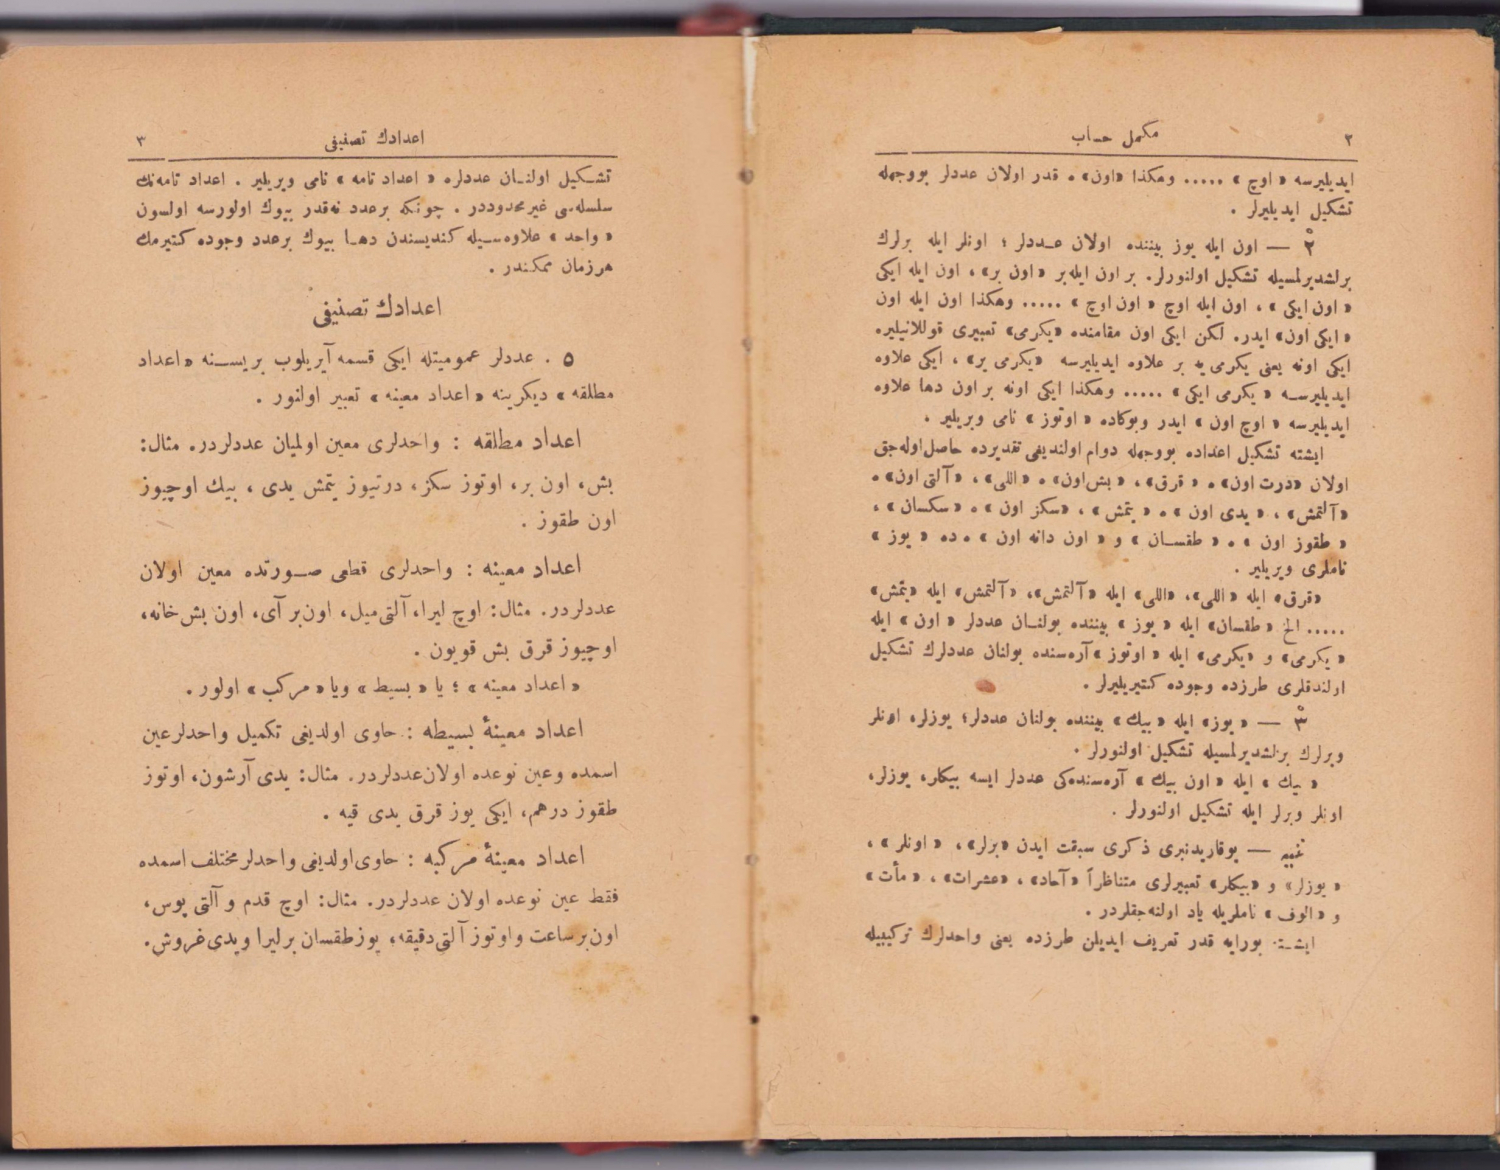 ٢ مكمل حساب
ايديليرسه « اوچ » ..... وهكذا «اون» ه قدر اولان عددلر بووجهله
تشكيل ايديليرلر .
٢ْ — اون ايله يوز بيننده اولان عددلر ؛ اونلر ايله برلرك
برلشديرلمسيله تشكيل اولنورلر. بر اون ايله بر «اون بر» ، اون ايله ايكى
« اون ايكى » ، اون ايله اوچ « اون اوچ » ..... وهكذا اون ايله اون
« ايكى اون» ايدر. لكن ايكى اون مقامنده «يكرمى» تعبيرى قوللانيلير.
ايكى اونه يعنى يكرمى يه بر علاوه ايديليرسه «يكرمى بر» ، ايكى علاوه
ايديليرسه « يكرمى ايكى » ..... وهكذا ايكى اونه بر اون دها علاوه
ايديليرسه « اوچ اون » ايدر وبوكاده « اوتوز » نامى ويريلير .
ايشته تشكيل اعداده بووجهله دوام اولنديغى تقديرده حاصل اوله جق
اولان «درت اون» ه « قرق» ، «بش اون» ه « اللى» ، «آلتى اون» ه
«آلتمش» ، « يدى اون » ه « يتمش » ، «سكز اون » ه « سكسان » ،
« طقوز اون » ه « طقسان » و « اون دانه اون » ه ده « يوز »
ناملرى ويريلير .
«قرق» ايله « اللى» ، «اللى» ايله «آلتمش» ، «آلتمش» ايله «يتمش»
..... الخ « طقسان» ايله « يوز » بيننده بولنان عددلر « اون » ايله
« يكرمى» و «يكرمى» ايله « اوتوز » آره سنده بولنان عددلرك تشكيل
اولندقلرى طرزده وجوده كتيريليرلر .
٣ْ — « يوز» ايله « بيك» بيننده بولنان عددلر؛ يوزلر، اونلر
وبرلرك برلشديرلمسيله تشكيل اولنورلر .
« بيك » ايله « اون بيك » آره سنده كى عددلر ايسه بيكلر، يوزلر،
اونلر وبرلر ايله تشكيل اولنورلر .
تنبيه — يوقاريدنبرى ذكرى سبقت ايدن «برلر» ، « اونلر » ،
« يوزلر» و «بيكلر» تعبيرلرى متناظراً «آحاد» ، «عشرات» ، « مأت »
و « الوف » ناملريله ياد اولنه جقلردر .
ايشته بورايه قدر تعريف ايديلن طرزده يعنى واحدلرك تركيبيله
اعدادك تصنيفى ٣
تشكيل اولنان عددلره « اعداد تامه » نامى ويريلير . اعداد تامه نك
سلسله سى غير محدوددر . چونكه بر عدد نه قدر بيوك اولورسه اولسون
« واحد » علاوه سيله كنديسندن دها بيوك بر عدد وجوده كتيرمك
هر زمان ممكندر .
اعدادك تصنيفى
٥ . عددلر عموميتله ايكى قسمه آيريلوب بريسنه « اعداد
مطلقه » ديكرينه « اعداد معينه » تعبير اولنور .
اعداد مطلقه : واحدلرى معين اولميان عددلردر. مثال:
بش، اون بر، اوتوز سكز، درتيوز يتمش يدى ، بيك اوچيوز
اون طقوز .
اعداد معينه : واحدلرى قطعى صورتده معين اولان
عددلردر. مثال: اوچ ليرا، آلتى ميل، اون بر آى، اون بش خانه،
اوچيوز قرق بش قويون .
« اعداد معينه » ؛ يا « بسيط » ويا « مركب » اولور .
اعداد معينۀ بسيطه : حاوى اولديغى تكميل واحدلر عين
اسمده وعين نوعده اولان عددلردر. مثال: يدى آرشون، اوتوز
طقوز درهم، ايكى يوز قرق يدى قيه .
اعداد معينۀ مركبه : حاوى اولديغى واحدلر مختلف اسمده
فقط عين نوعده اولان عددلردر. مثال: اوچ قدم و آلتى پوس،
اون بر ساعت و اوتوز آلتى دقيقه، يوز طقسان بر ليرا ويدى غروش.